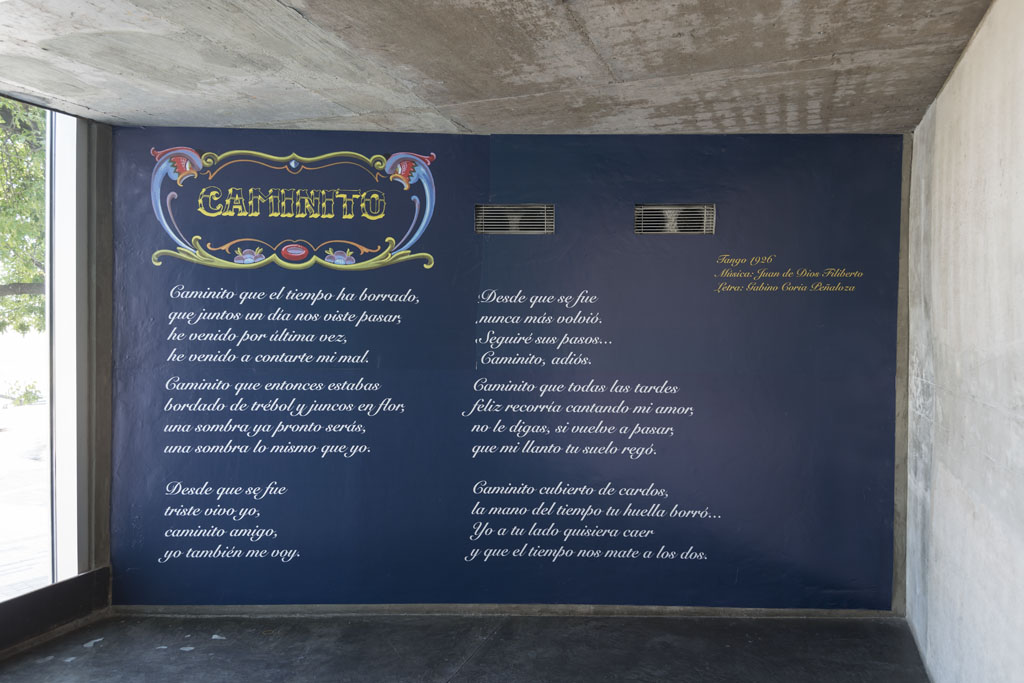 CAMINITO
Caminito que el tiempo ha borrado,
que juntos un día nos viste pasar,
he venido por última vez,
he venido a contarte mi mal.
Caminito que entonces estabas
bordado de trébol y juncos en flor,
una sombra ya pronto serás,
una sombra lo mismo que yo.
Desde que se fue
triste vivo yo,
caminito amigo,
yo también me voy.
Desde que se fue
nunca más volvió.
Seguiré sus pasos...
Caminito, adiós.
Caminito que todas las tardes
feliz recorría cantando mi amor,
no le digas, si vuelve a pasar,
que mi llanto tu suelo regó.
Caminito cubierto de cardos,
la mano del tiempo tu huella borró...
Yo a tu lado quisiera caer
y que el tiempo nos mate a los dos.
Tango 1926
Música: Juan de Dios Filiberto
Letra: Gabino Coria Peñaloza